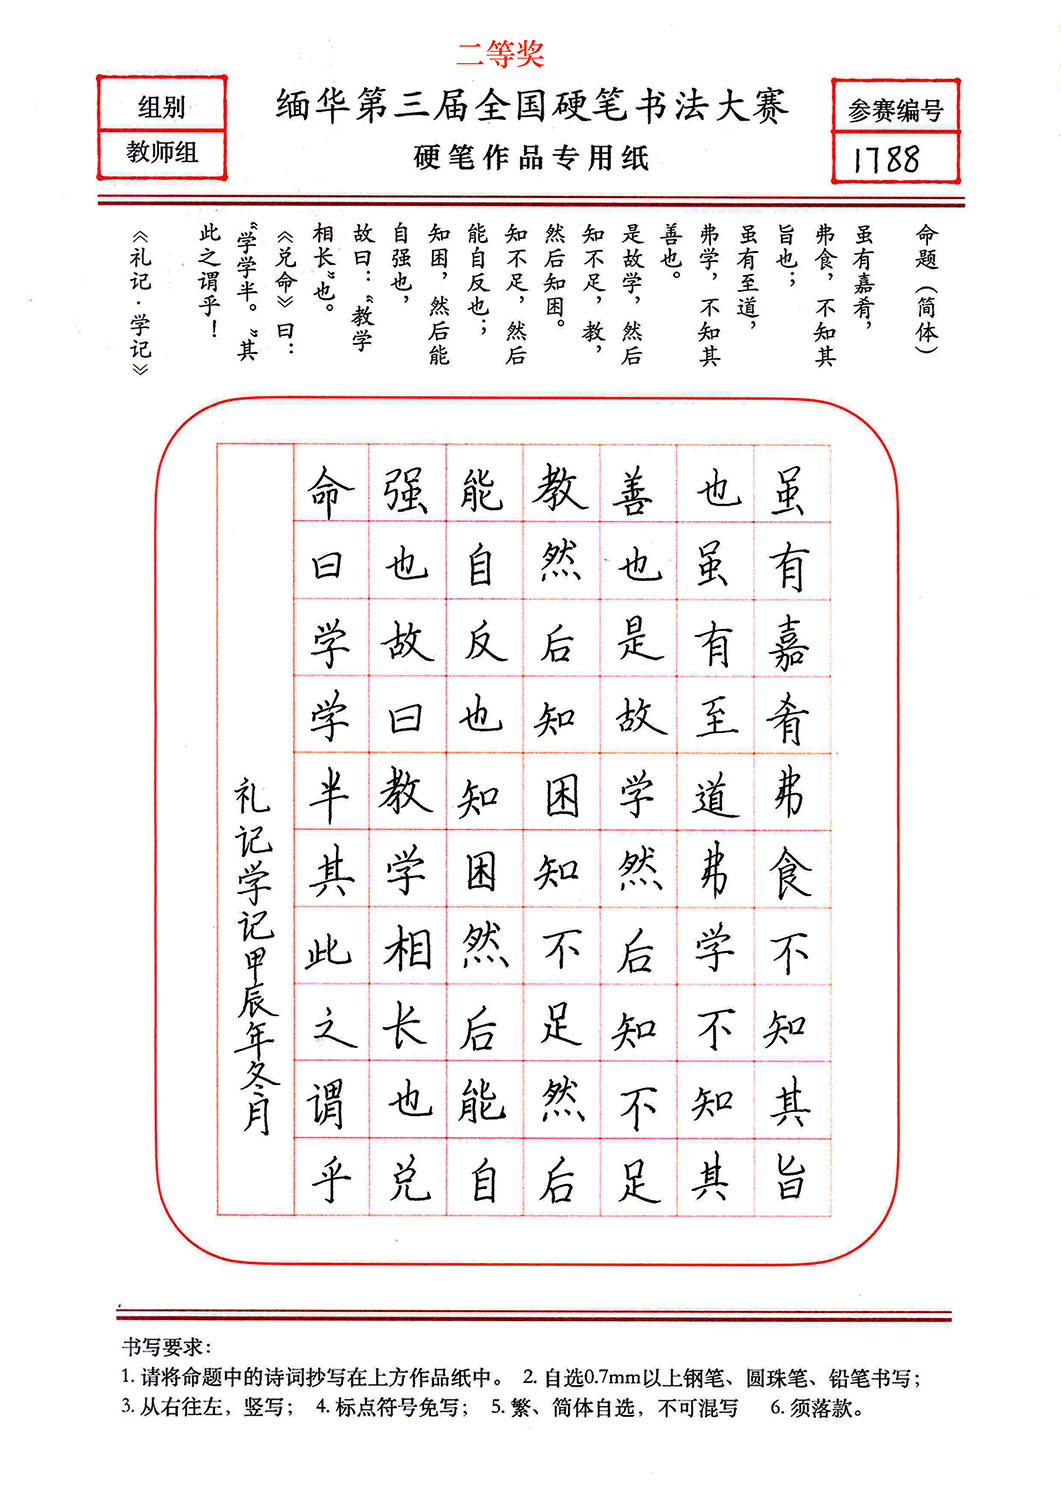 二等奖
组别
教师组
缅华第三届全国硬笔书法大赛
硬笔作品专用纸
参赛编号
1788
命题（简体）
虽有嘉肴，
弗食，不知其
旨也；
虽有至道，
弗学，不知其
善也。
是故学，然后
知不足，教，
然后知困。
知不足，然后
能自反也；
知困，然后能
自强也，
故曰：“教学
相长”也。
《兑命》曰：
“学学半。”其
此之谓乎！
《礼记·学记》
虽有嘉肴弗食不知其旨
也虽有至道弗学不知其
善也是故学然后知不足
教然后知困知不足然后
能自反也知困然后能自
强也故曰教学相长也兑
命曰学学半其此之谓乎
礼记学记甲辰年冬月
书写要求：
1. 请将命题中的诗词抄写在上方作品纸中。 2. 自选0.7mm以上钢笔、圆珠笔、铅笔书写；
3. 从右往左，竖写； 4. 标点符号免写； 5. 繁、简体自选，不可混写 6. 须落款。